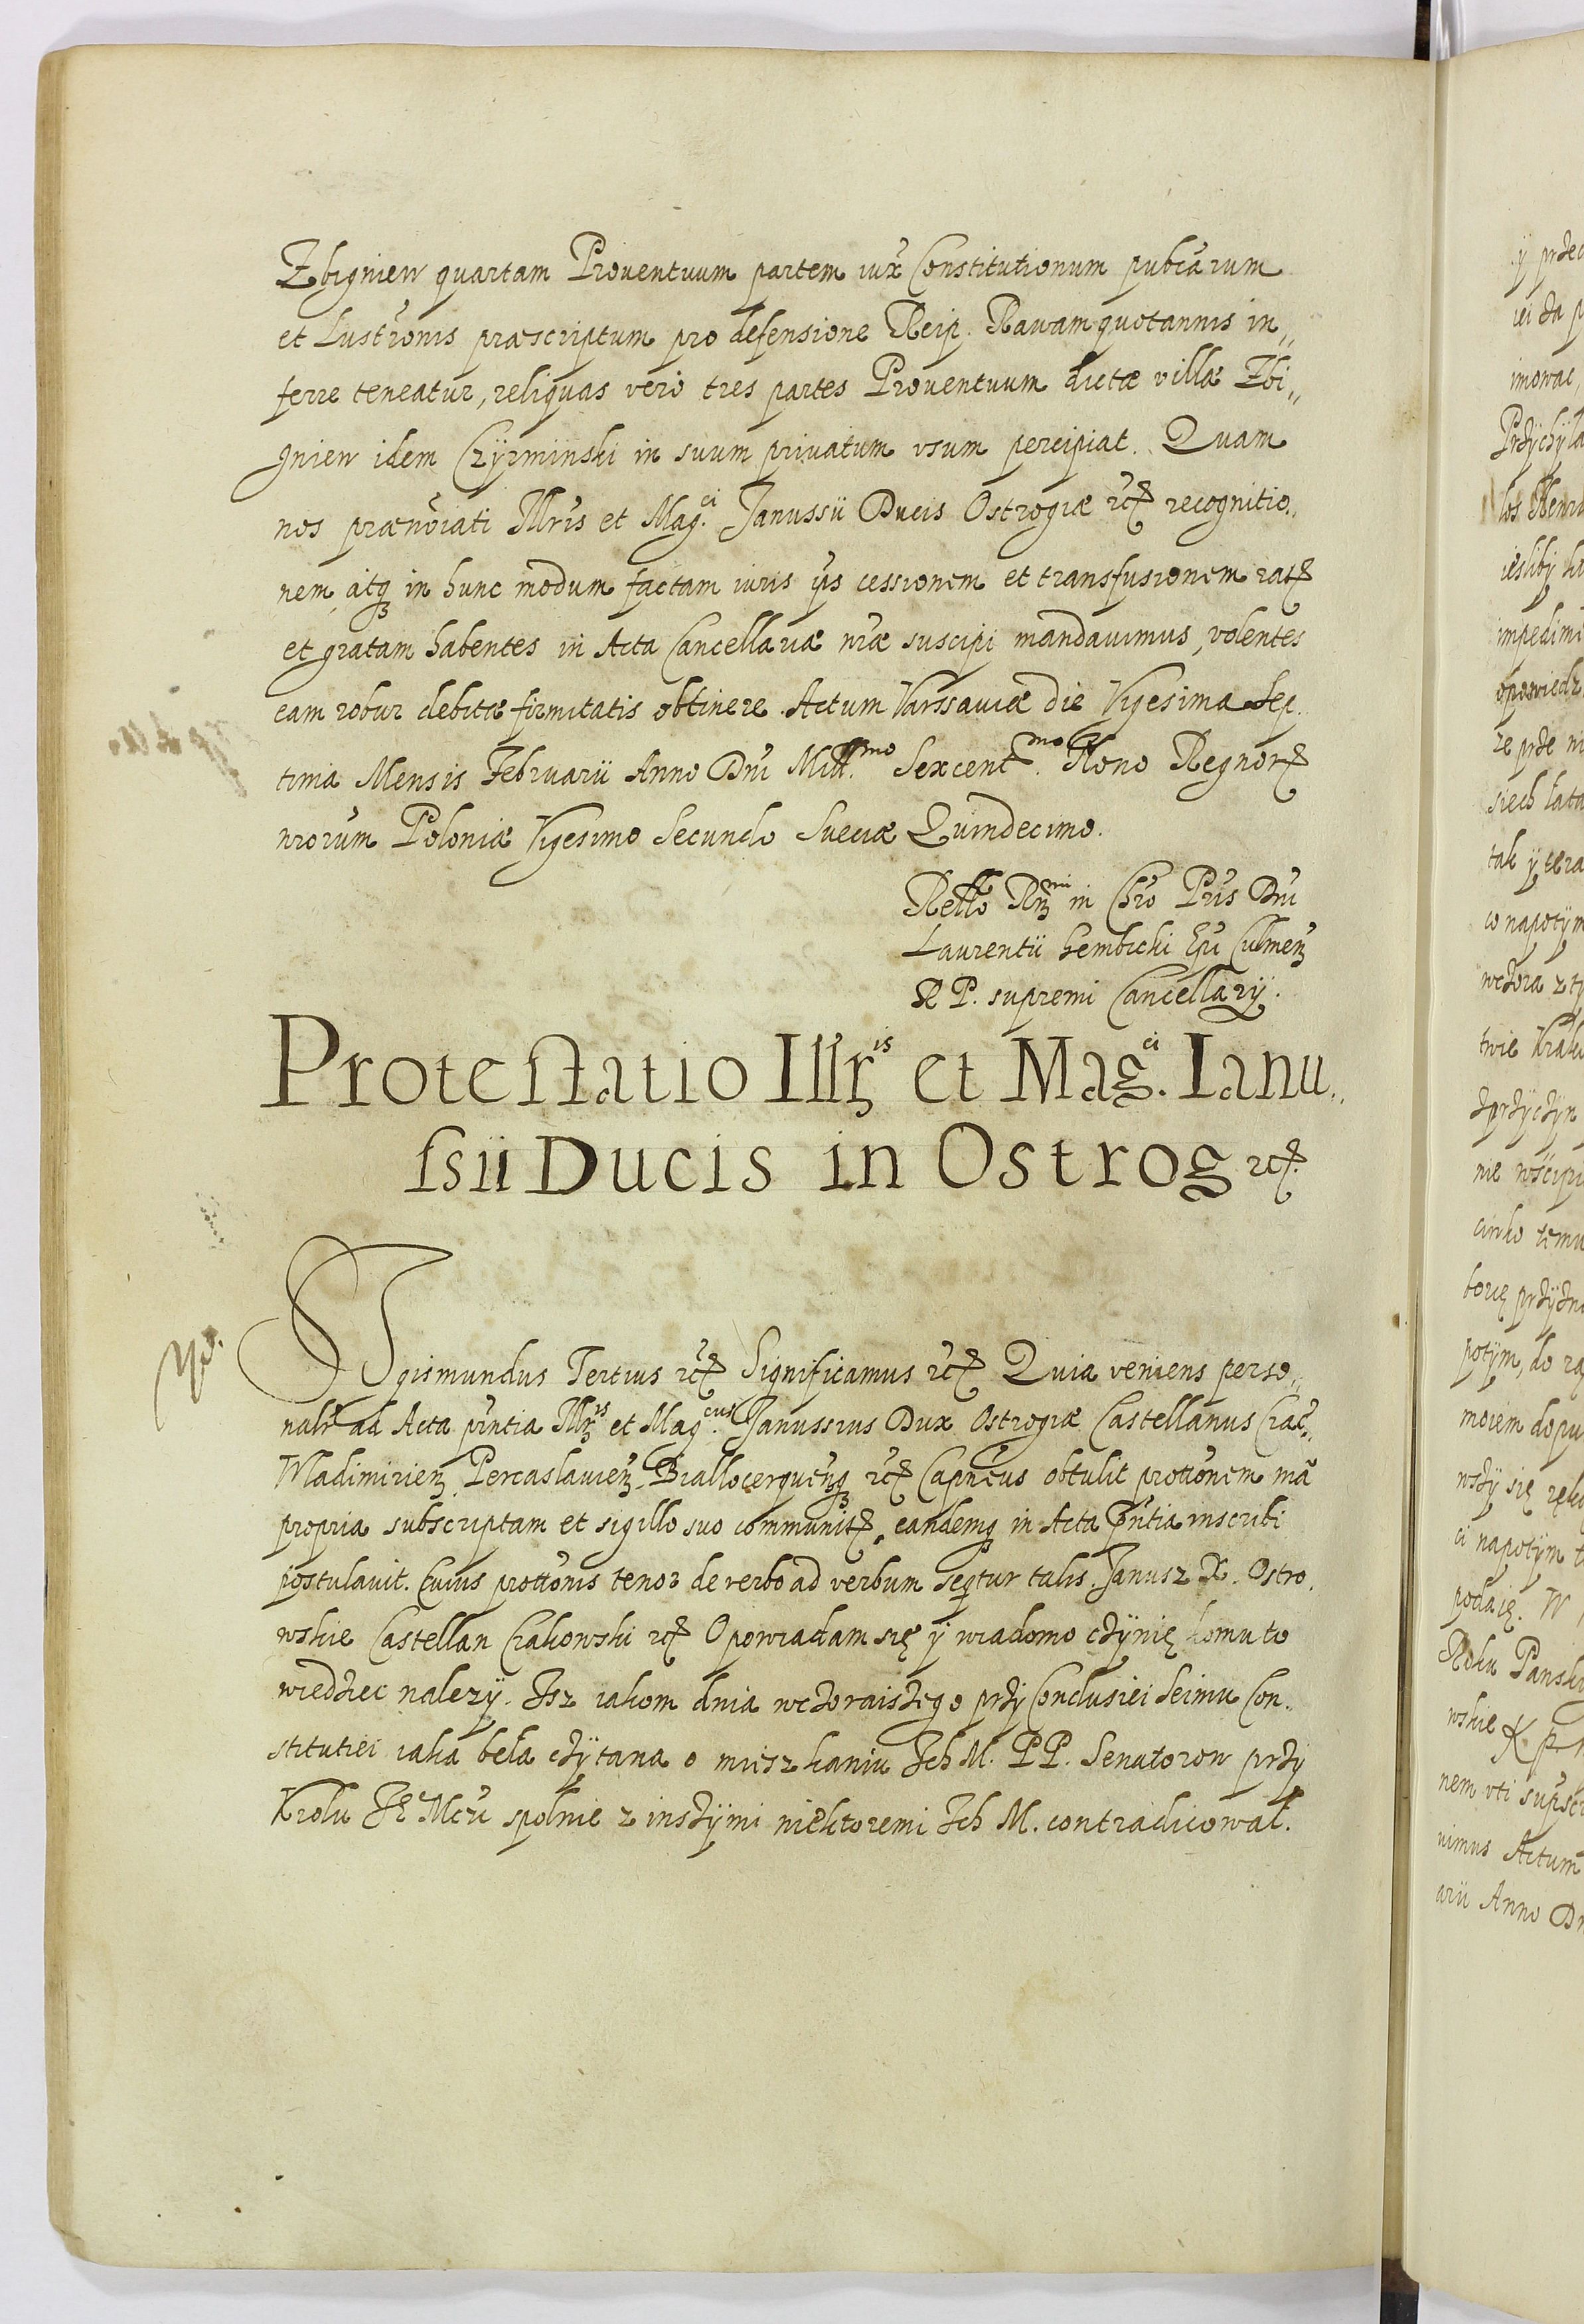 Zbigniew quartam Prouentuum partem iux̃ Constitutionum publ̃carum
et Lustrõnis præscriptum pro defensione Reip. Rauam quotannis in„
ferre teneatur, reliquas verò tres partes Prouentuum dictæ villæ Zbi„
gniew idem Czÿrminski in suum priuatum vsum percipiat. Quam
nos prænõiati Illr̃is et Mag.ci Janussii Ducis Ostrogiæ etc̃ recognitio„
nem, atq; in hunc modum factam iuris ỹs cessionem et transfusionem rat̃
et gratam habentes in Acta Cancellariæ nr̃æ suscipi mandauimus, volentes
eam robur debitæ firmitatis obtinere. Actum Varssauiæ die Vigesima Sep„
tima Mensis Februarii Anno Dñi Mill.mo Sexcent.mo Nono Regnor̃
nr̃orum Poloniæ Vigesimo Secundo Sueciæ Quindecimo.
Rel̃lo Rm̃i in Chr̃o Pr̃is Dñi
Laurentii Gembicki Ep̃i Culmen̄
R P. supremi Cancellarÿ.
Protestatio Illr̃is et Mag.ci Ianu„
ssii Ducis in Ostrog etc̃.
Sigismundus Tertius etc̃ Significamus etc̃ Quia veniens perso„
nalr̃ ad Acta pñtia Illr̃is et Mag.cus Janussius Dux Ostrogiæ Castellanus Crac̃„
Wladimirien̄. Pereaslauien̄. Biallocerquen̄q; etc̃ Capñeus obtulit protõnem mã
propria subscriptam et sigillo suo communit̃, eandemq; in Acta pñtia inscribi
postulauit. Cuius protõnis tenor de verbo ad verbum seqtur talis. Janusz X. Ostro„
wskie Castellan Crakowski etc̃ Opowiadam się ÿ wiadomo cżÿnię komu to
wiedżiec nalezÿ. Isz iakom dnia wcżoraiszego prżÿ Conclusiei Seimu Con„
stitutiei iaka beła cżÿtana o mieszkaniu Ich M. PP. Senatorow prżÿ
Krolu JE Mc̃u spolnie z insżÿmi niektoremi Ich M. contradicował.